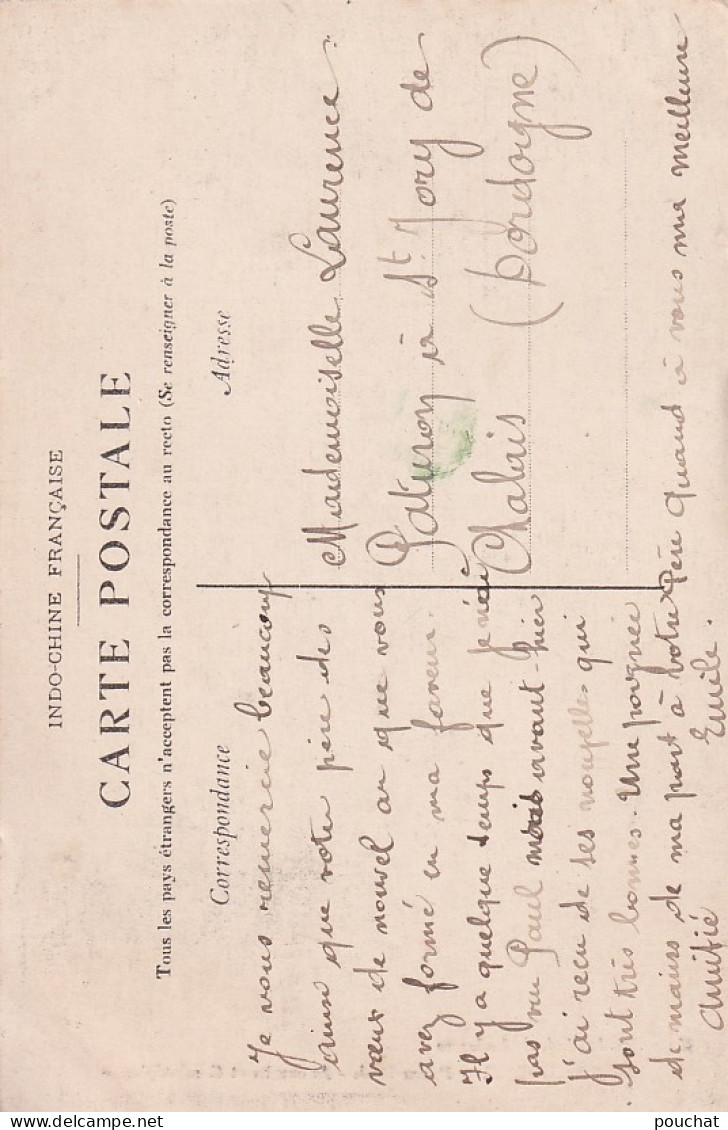 INDO-CHINE FRANÇAISE
CARTE POSTALE
Tous les pays étrangers n'acceptent pas la correspondance au recto (Se renseigner à la poste)
Correspondance
Adresse
Je vous remercie beaucoup
ainsi que votre père des
vœux de nouvel an que vous
avez formé en ma faveur.
Il y a quelque temps que je n'ai
pas vu Paul mais avant-hier
j'ai reçu de ses nouvelles qui
sont très bonnes. Une poignée
de mains de ma part à votre Père quand à vous ma meilleure
amitié Emile.
Mademoiselle Laurence
à St. Jory de
Chalais (Dordogne)
delcampe.net
pouchat